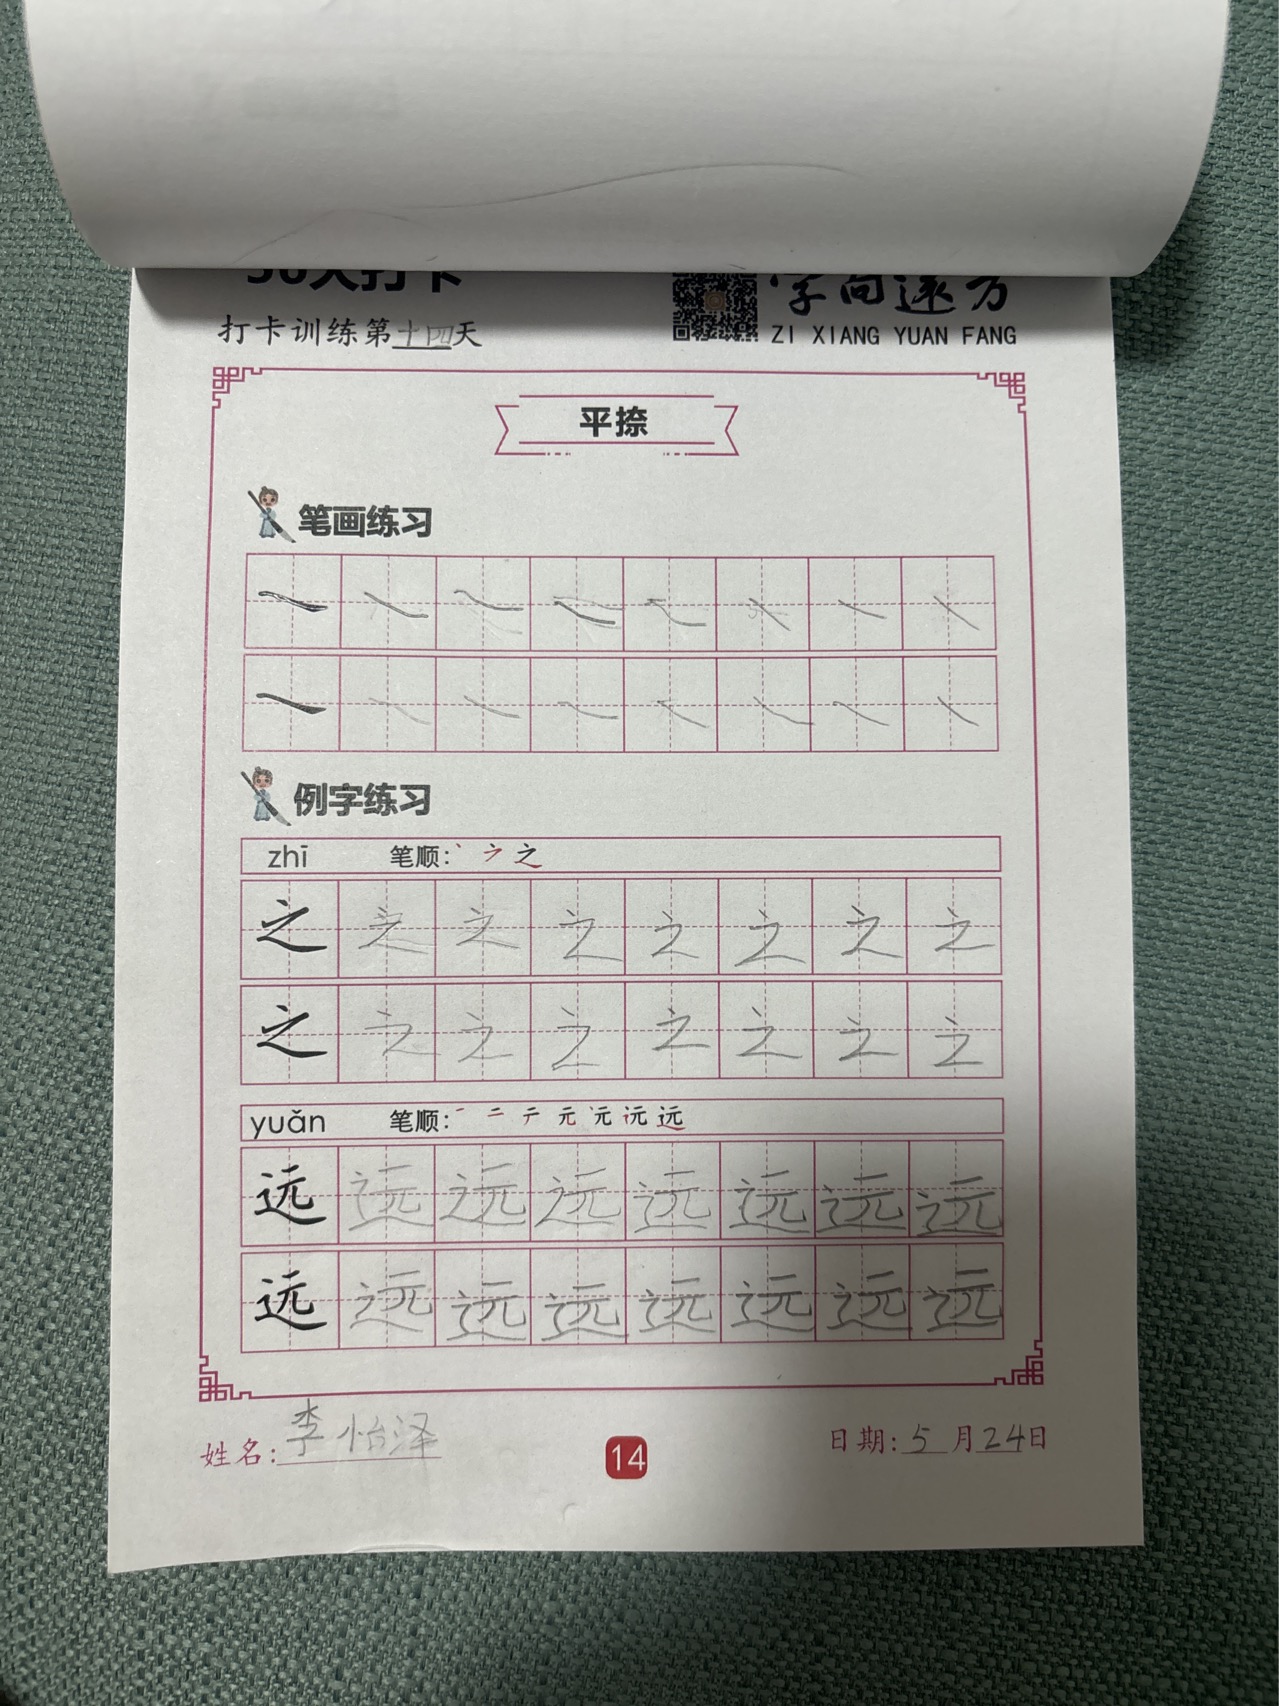 30天打卡
字向远方
打卡训练第十四天
ZI XIANG YUAN FANG
平捺
笔画练习
例字练习
zhī 笔顺: 丶 ㇇ 之
之 之 之 之 之 之 之 之
之 之 之 之 之 之 之 之
yuǎn 笔顺: 一 二 テ 元 沅 远 远
远 远 远 远 远 远 远 远
远 远 远 远 远 远 远 远
姓名: 李怡泽
14
日期: 5月24日